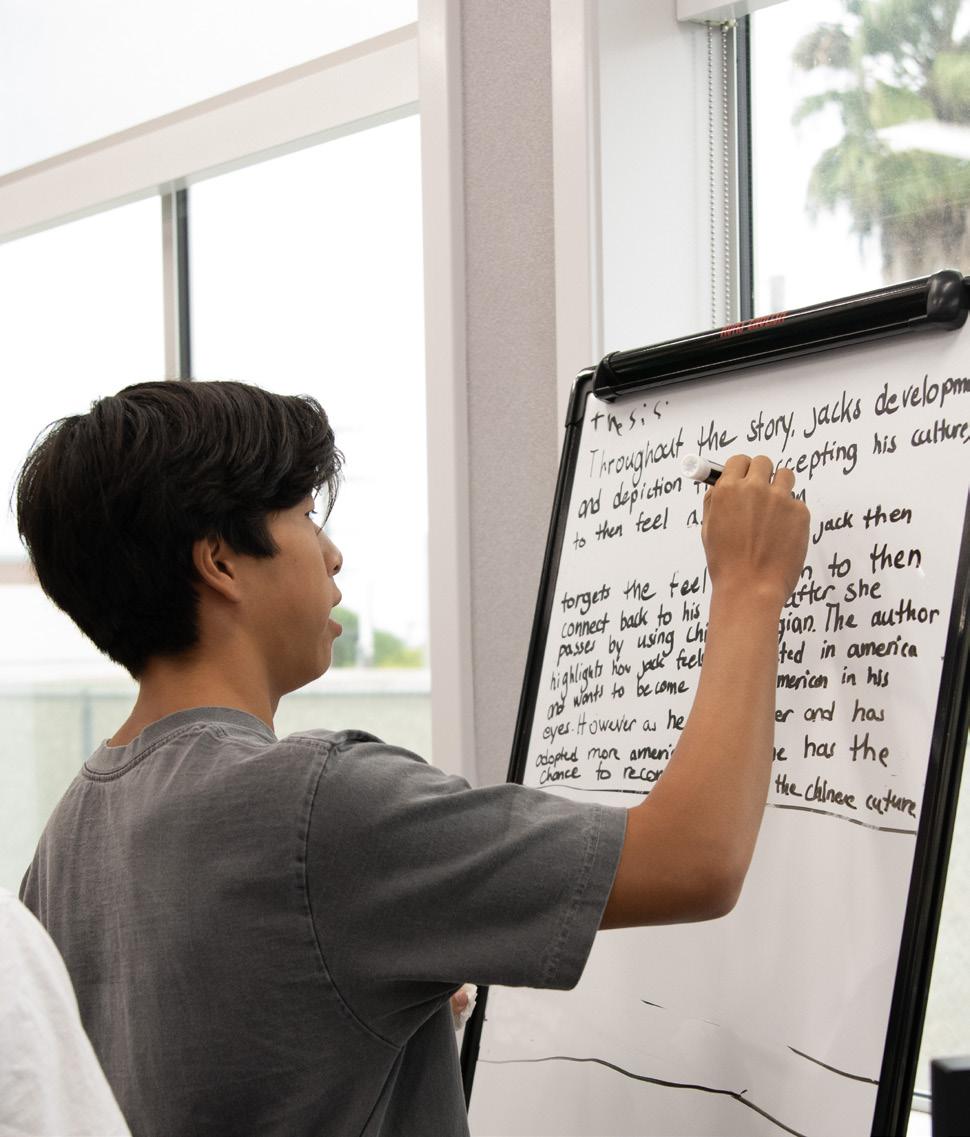 thesis:
Throughout the story, jacks developm
and depiction accepting his culture,
to then feel jack then
forgets the feel to then
connect back to his after she
passer by using chi gian. The author
highlights how jack feels ted in america
and wants to become american in his
eyes. However as he er and has
adopted more ameri he has the
chance to recon the chinese culture